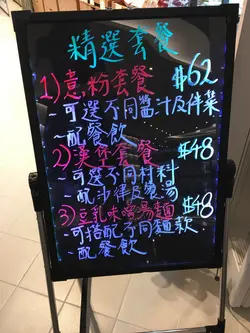 精選套餐
1)意粉套餐 $62
-可選不同醬汁及伴菜
-配餐飲
2)漢堡套餐 $48
-可選不同材料
-配沙律及湯
3)豆乳味噌湯麵 $48
-可搭配不同麵款
配餐飲